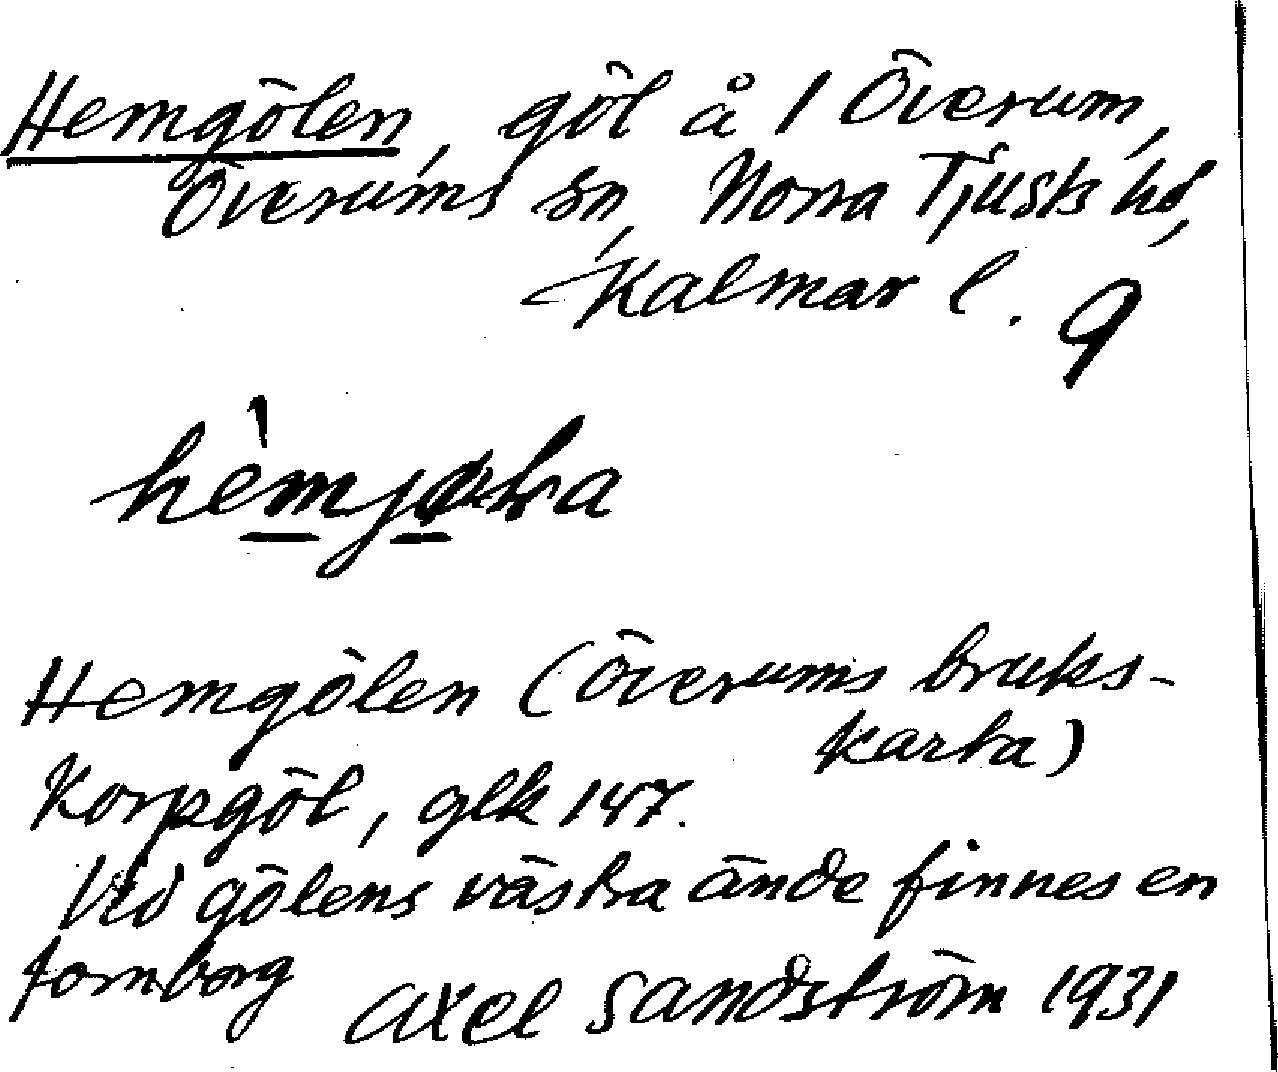 Hemgölen, göl å 1 Överum,
Överums sn, Norra Tjusts hd,
Kalmar l. 9
Hemgölen (Överums bruks-
karta)
Korpgöl, glk 147.
Vid gölens västra ände finnes en
fornborg
Axel Sandström 1931